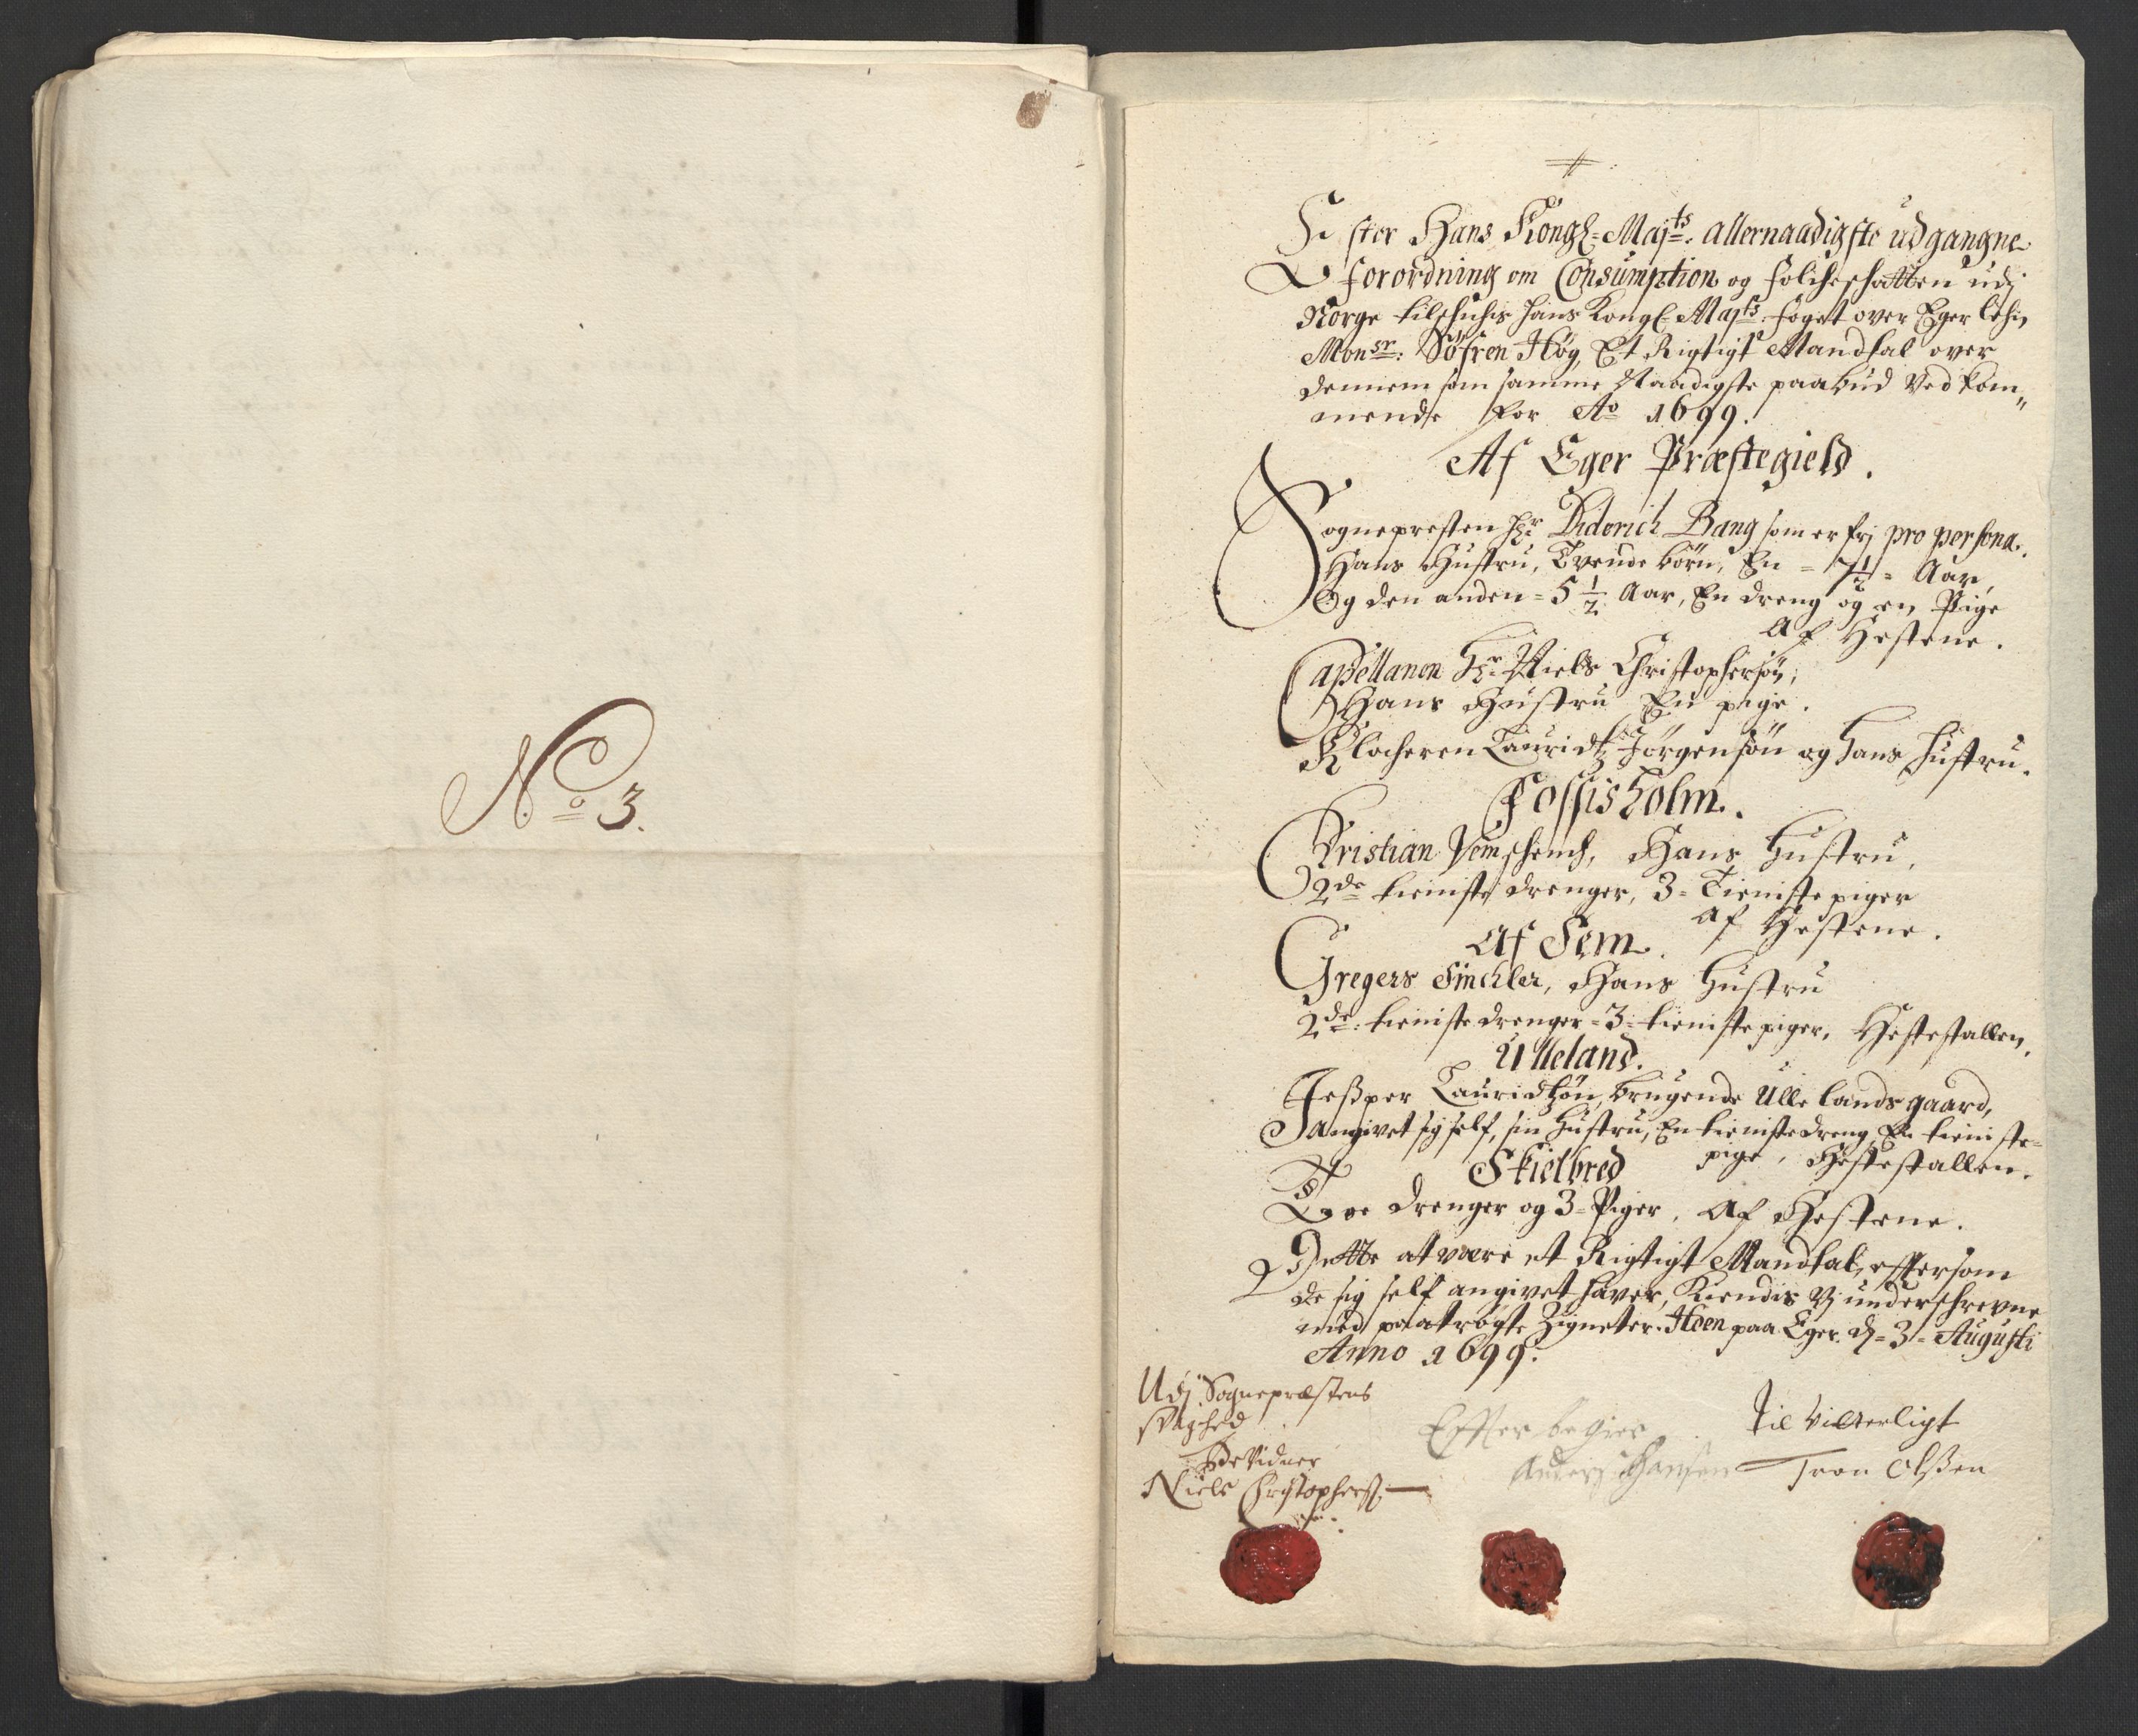 No 3.
Efter Hans Kongl: Majts: allernaadigste udgangne
forordning om Consumption og folcheschatten udj
Norge tilschichis hans Kongl Majts: foget over Eger lehn
Monsr: Söfren Høg, Et Rigtigt Mandtal over
dennem som samme Naadigste paabud Ved kom„
mende for Ao 1699.
Af Eger Præstegield.
Sognepresten Hr Diderich Bang som er frj pro persona.
Hans Hustru, Tvende börn, En = 7 1/2 = Aar,
Og den anden = 5 1/2 Aar, En dreng og en Pige
af Hestene.
Capellanen Hr. Niels Christophersøn,
Hans Hustru En pige.
Klocheren Lauridtz Jörgensön og hans hustru.
Fossisholm.
Christian Vemschench, Hans Hustru,
2de tieniste drenger, 3 = Tieniste piger
af Hestene.
Af Sem.
Gregers Sinchler, Hans Hustru
2de: tieniste drenger = 3 = tieniste piger, Hestestallen.
Ulleland.
Jesper Lauridtzön, brugende Ulle lands gaard,
angivet sig self, sin Hustru, En tieniste dreng, En tieniste=
pige, Hestestallen.
Skielbred
Toe drenger og 3 = Piger, Af Hestene.
Dette at være et Rigtigt Mandtal, eftersom
de sig self angivet haver, Kiendis Vj underschrevne
med paatrögte Zigneter. Hoen paa Eger. d = 3 = Augusti
Anno 1699.
Udj Sognepræstens
svaghed
Bevidner
Niels Christophers:
Effter begier
Anders Hansen
Til Vitterligt
Tron Olsen